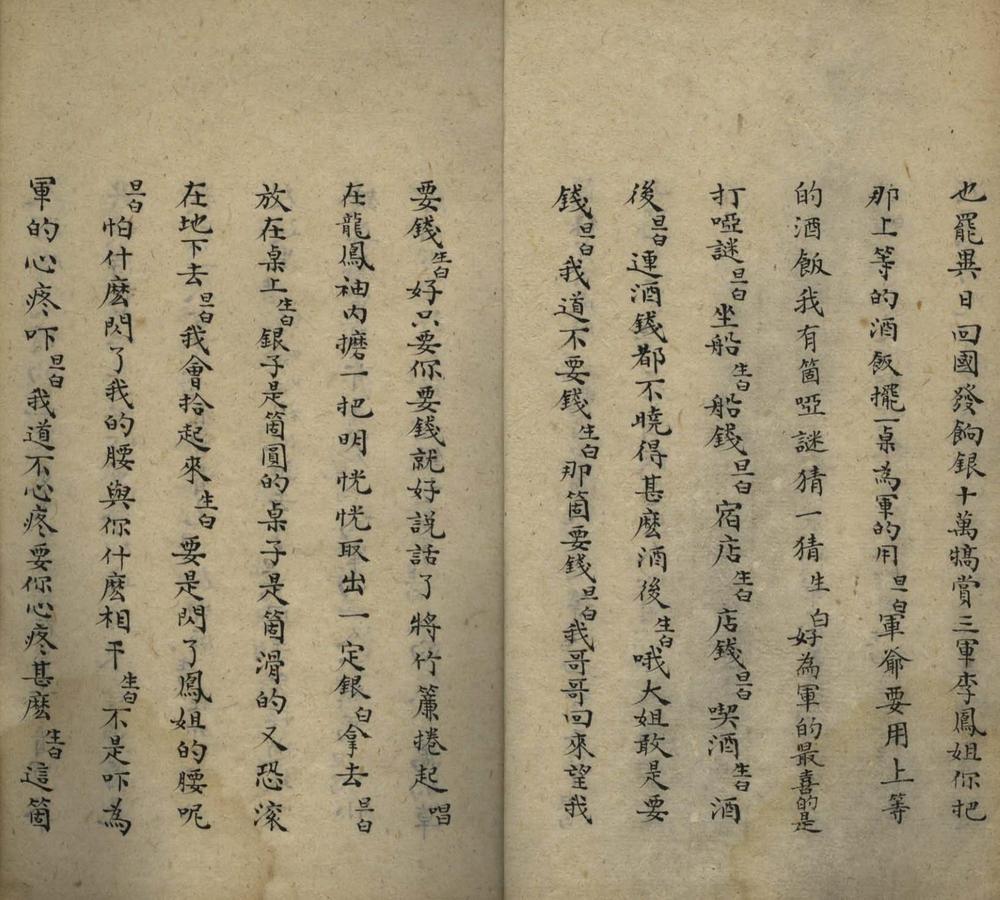 也罷異日回國發餉銀十萬犒賞三軍李鳳姐你把
那上等的酒飯擺一桌為軍的用旦白軍爺要用上等
的酒飯我有箇啞謎猜一猜生白好為軍的最喜的是
打啞謎旦白坐船生白船錢旦白宿店生白店錢旦白喫酒生白酒
後旦白連酒錢都不曉得甚麽酒後生白哦大姐敢是要
錢旦白我道不要錢生白那箇要錢旦白我哥哥回來望我
要錢生白好只要你要錢就好説話了將竹簾捲起唱
在龍鳳袖内摭一把明恍恍取出一定銀白拿去旦白
放在桌上生白銀子是箇圓的桌子是箇滑的又恐滚
在地下去旦白我會拾起來生白要是閃了鳳姐的腰呢
旦白怕什麽閃了我的腰與你什麽相干生白不是吓為
軍的心疼吓旦白我道不心疼要你心疼甚麽生白這箇